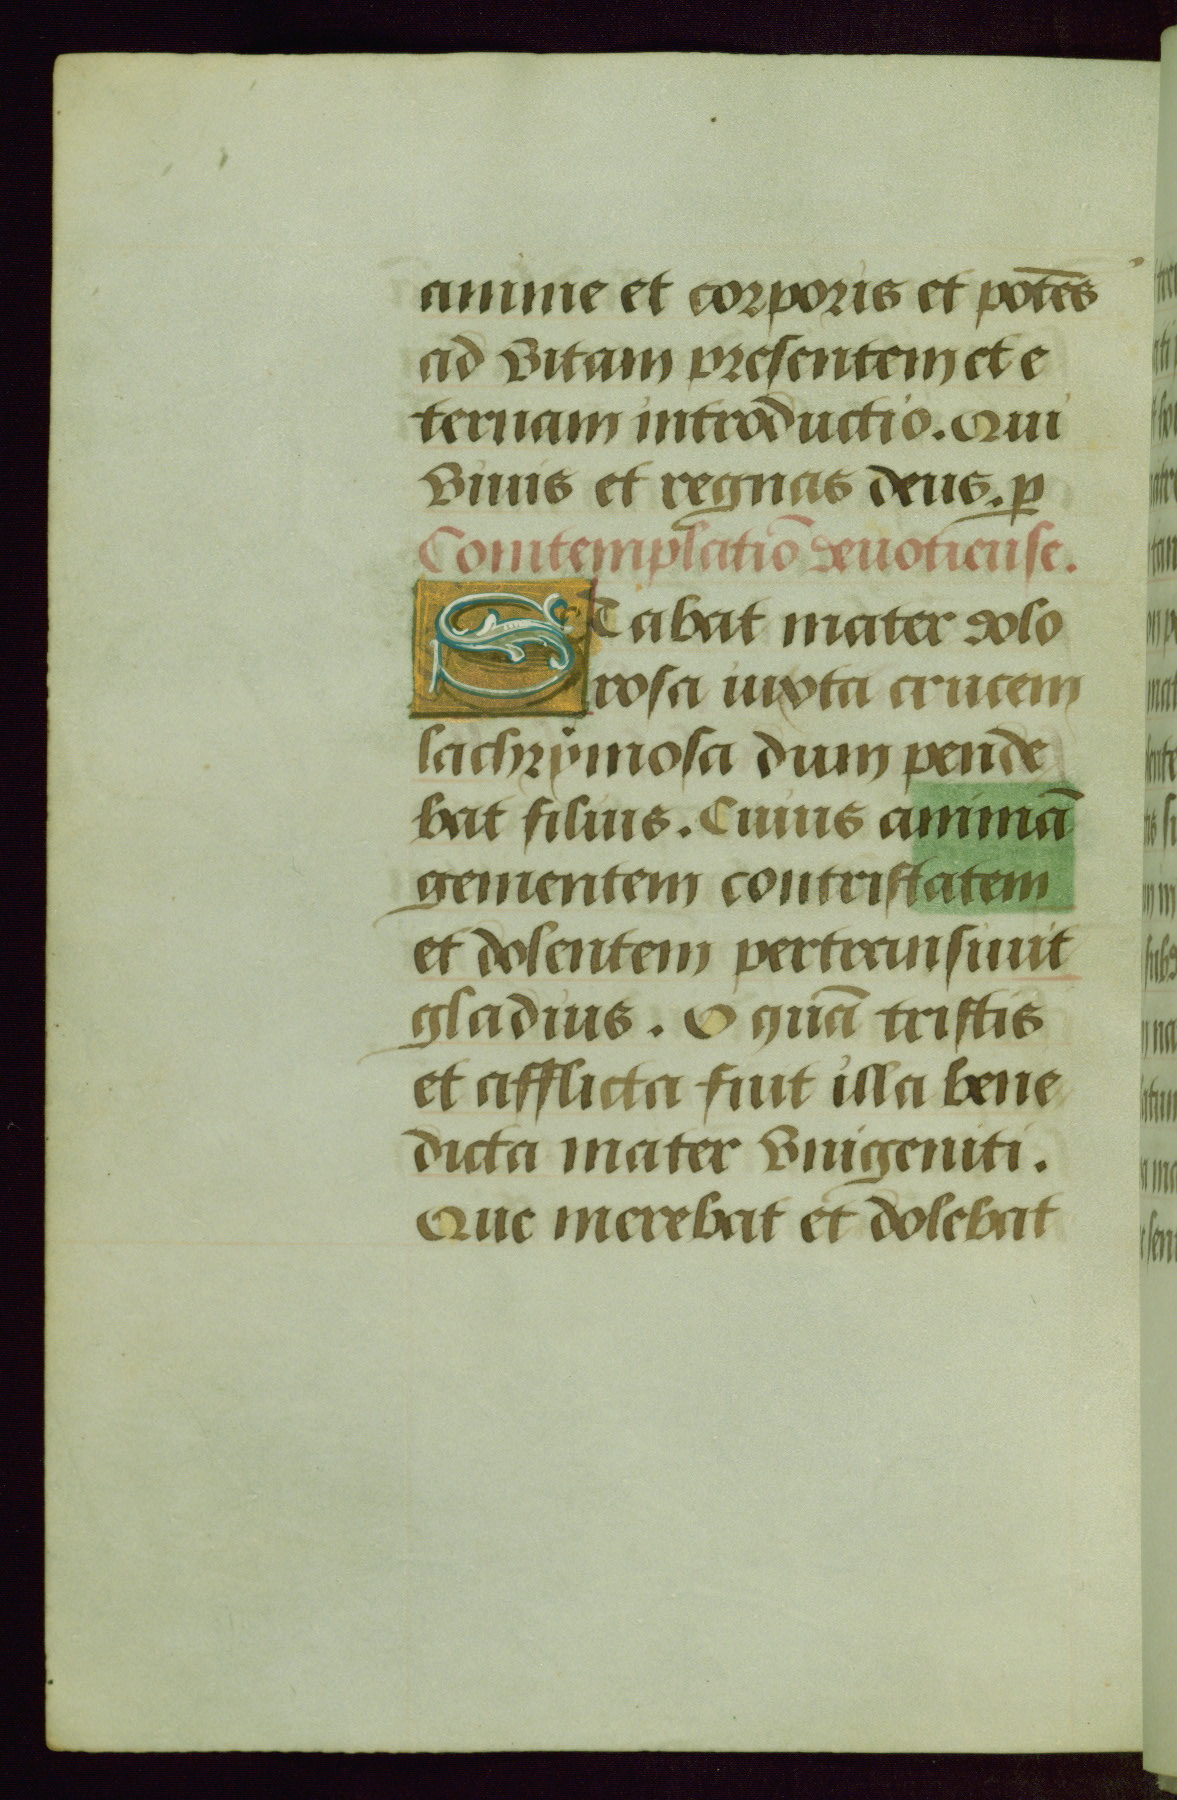 anime et corporis et potēs
ad vitam presentem et e
ternam introductio. Qui
viuis et regnas deus. p
Comtemplatiō deuotieuse.
STabat mater dolo
rosa iuxta crucem
lachrymosa dum pende
bat filius. Cuius animā
gementem contristatem
et dolentem pertransiuit
gladius. O quā tristis
et afflicta fuit illa bene
dicta mater vnigeniti.
Que merebat et dolebat